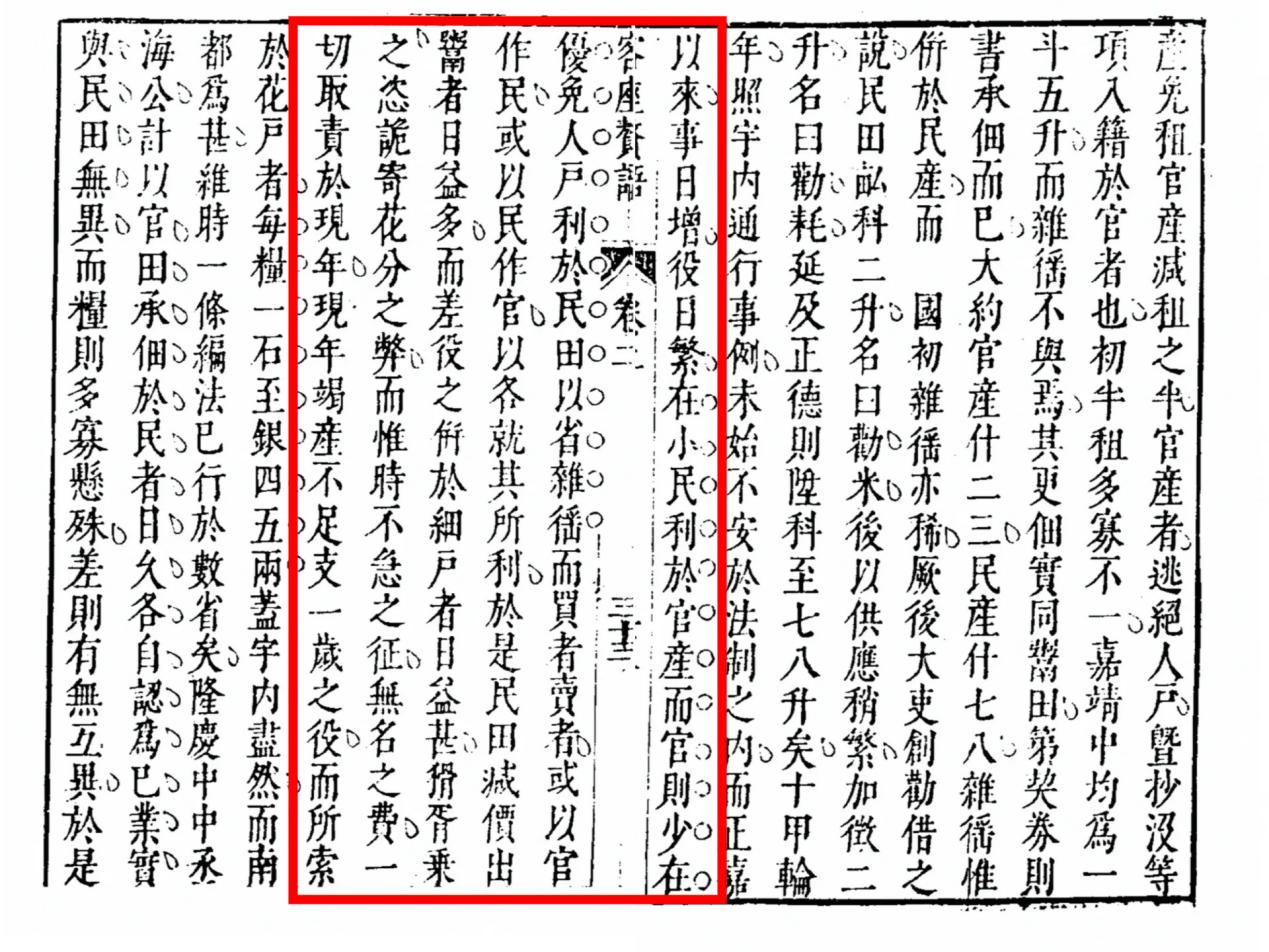 產免租官產減租之半官產者逃絕人戶曁抄沒等
項入籍於官者也初半租多寡不一嘉靖中均爲一
斗五升而雜徭不與焉其更佃實同鬻田第契券則
書承佃而已大約官產什二三民產什七八雜徭惟
併於民產而　國初雜徭亦稀厥後大吏創勸借之
說民田畝科二升名曰勸米後以供應稍繁加徵二
升名曰勸耗延及正德則陞科至七八升矣十甲輪
年照宇內通行事例未始不安於法制之內而正嘉
以來事日增役日繁在小民利於官產而官則少在
客座贅語　卷二　三十三
優免人戶利於民田以省雜徭而買者賣者或以官
作民或以民作官以各就其所利於是民田減價出
鬻者日益多而差役之併於細戶者日益甚猾胥乗
之恣詭寄花分之弊而惟時不急之征無名之費一
切取責於現年現年竭產不足支一歲之役而所索
於花戶者每糧一石至銀四五兩蓋宇內盡然而南
都爲甚維時一條編法已行於數省矣隆慶中中丞
海公計以官田承佃於民者日久各自認爲已業實
與民田無異而糧則多寡懸殊差則有無互異於是